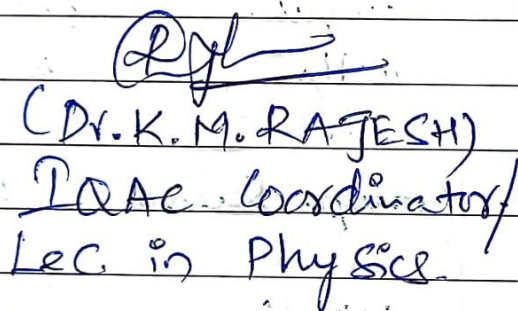 (Dr. K. M. RAJESH)
IQAC Coordinator/
Lec. in Physics.